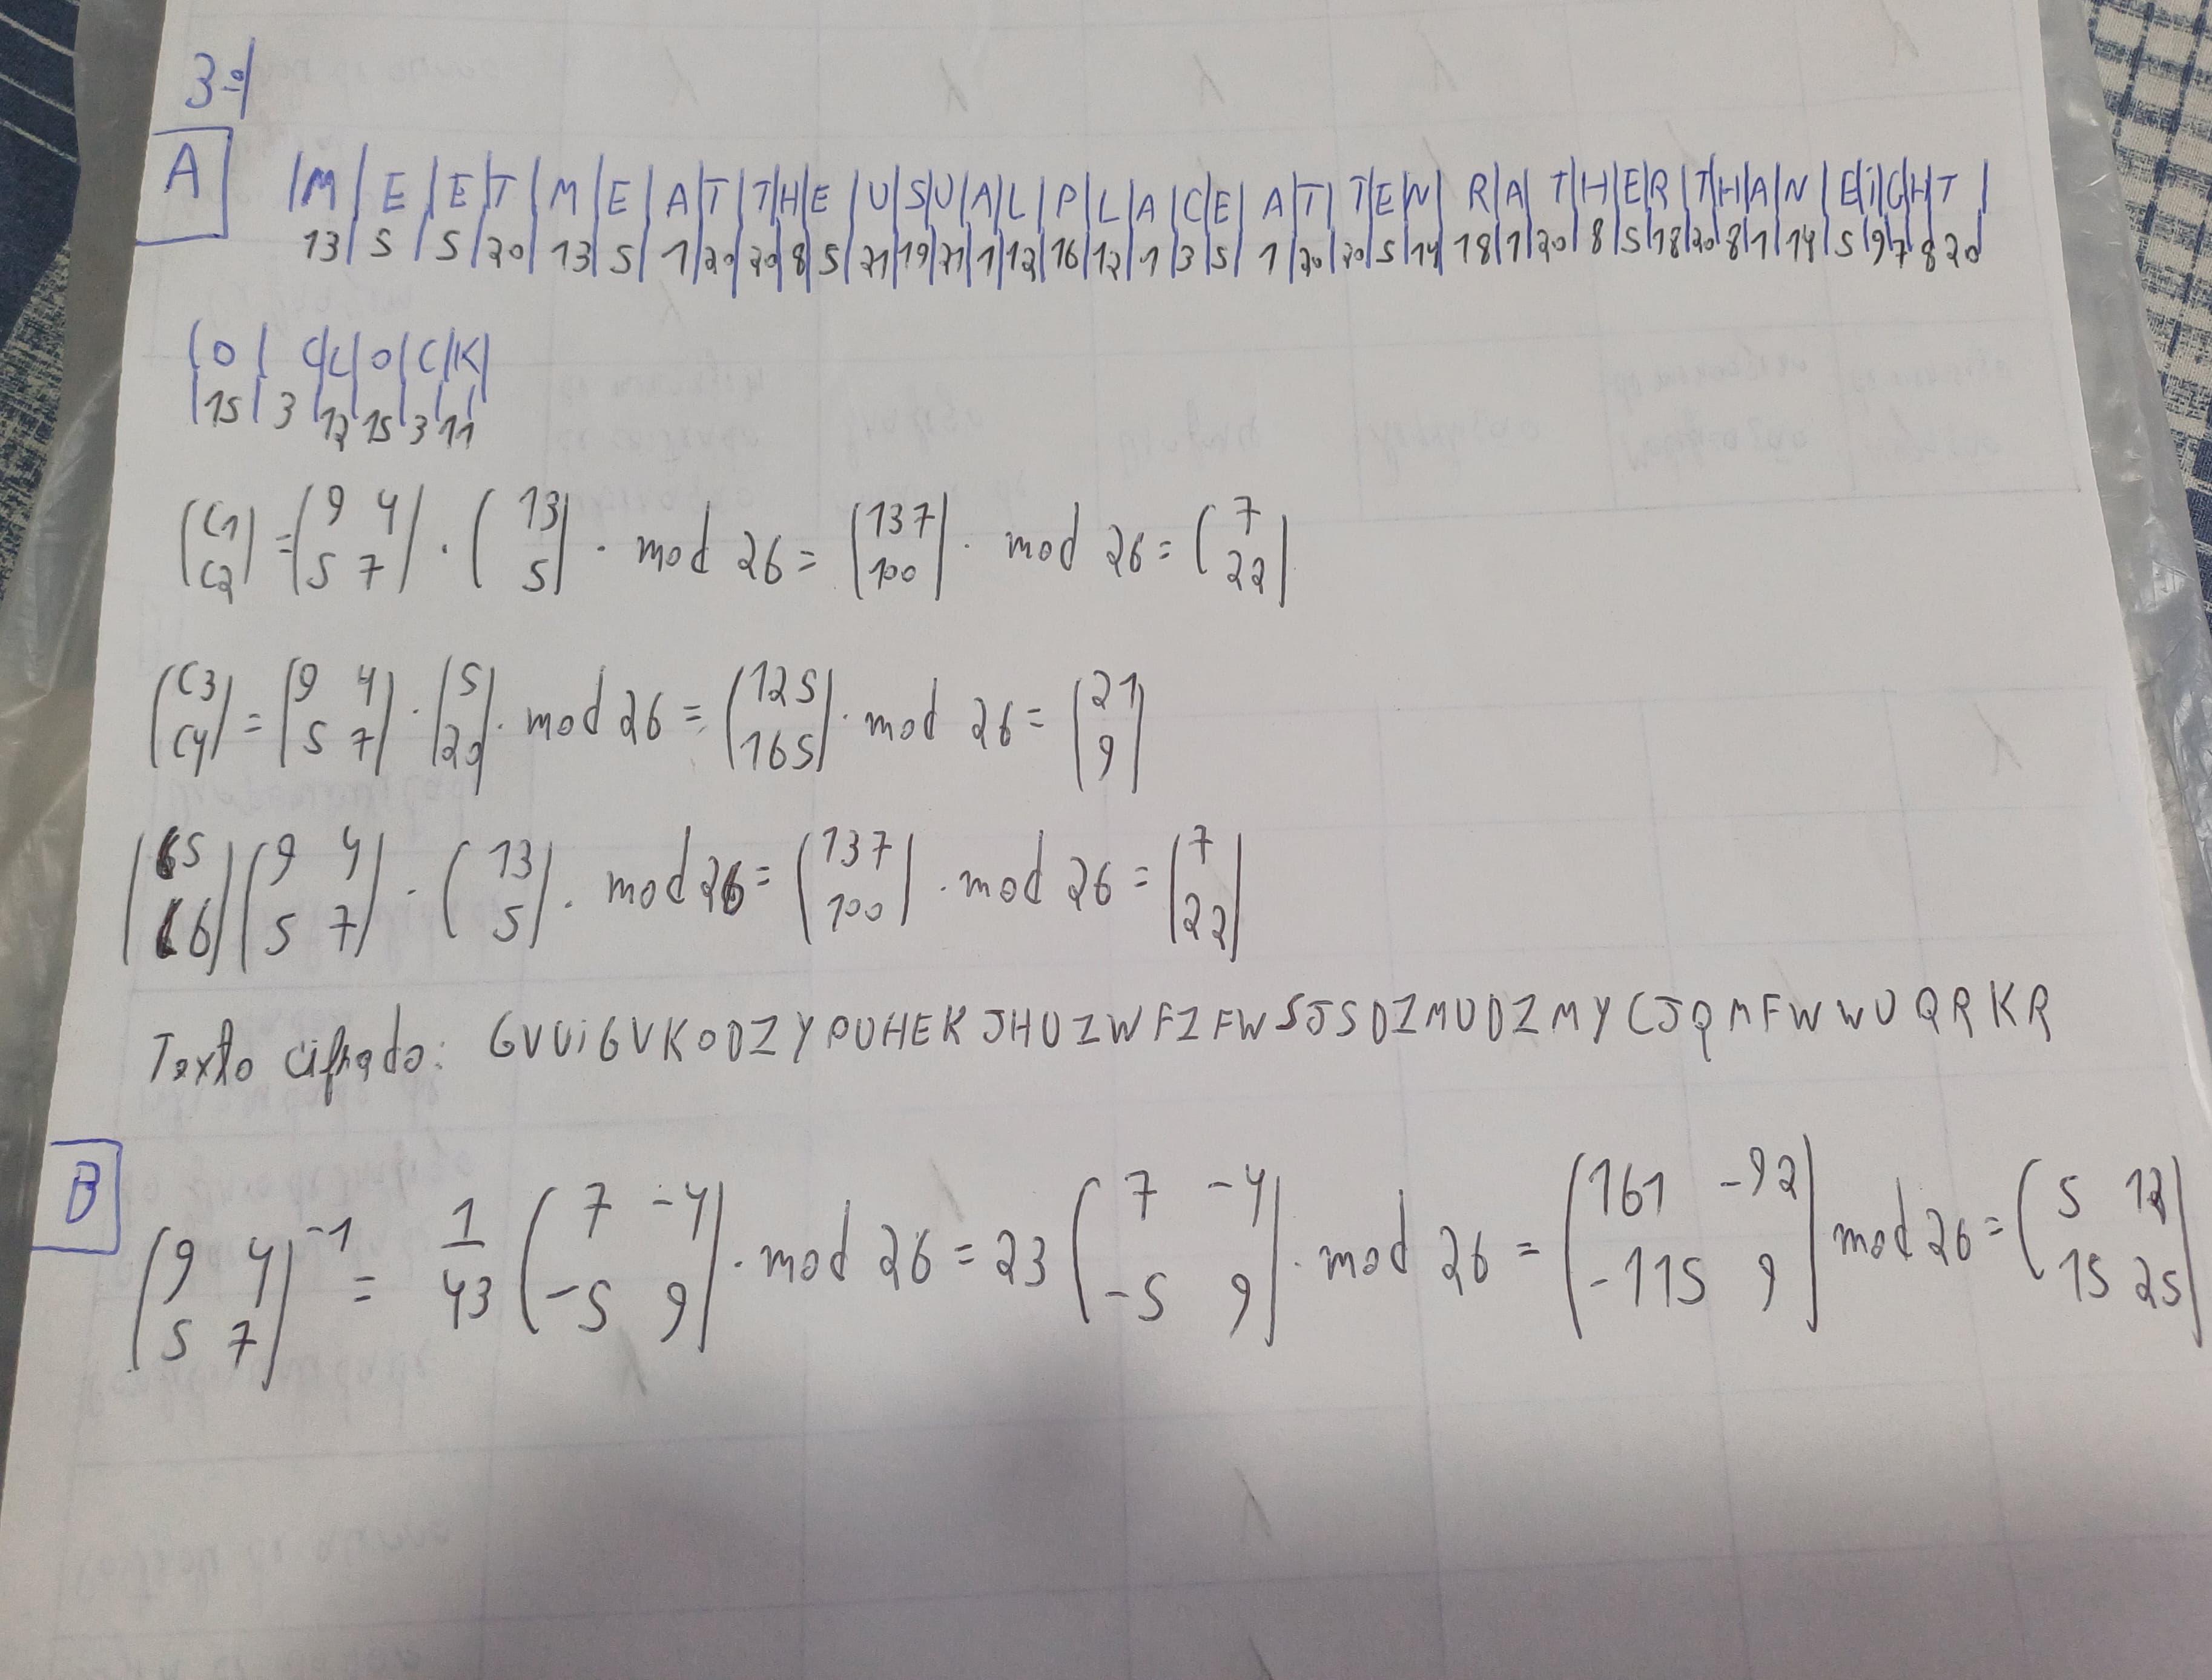 3=/
A
|M|E|E|T|M|E|A|T|T|H|E|U|S|U|A|L|P|L|A|C|E|A|T|T|E|N|R|A|T|H|E|R|T|H|A|N|E|i|G|H|T|
13|5|5|20|13|5|1|20|20|8|5|21|19|21|1|12|16|12|1|3|5|1|20|20|5|14|18|1|20|8|5|18|20|8|1|14|5|9|7|8|20
|O|C|L|O|C|K|
|15|3|12|15|3|11
(C1 C2) = (9 4 5 7) · (13 5) · mod 26 = (137 100) · mod 26 = (7 22)
(C3 C4) = (9 4 5 7) · (5 20) · mod 26 = (125 165) · mod 26 = (21 9)
(C5 C6) (9 4 5 7) · (13 5) · mod 26 = (137 100) · mod 26 = (7 22)
Texto cifrado: GVUiGVKODZYPUHEKJHUZWFZFWSJSDZMUDZMYCJQMFWWUQRKR
B
(9 4 5 7)⁻¹ = 1/43 (7 -4 -5 9) · mod 26 = 23 (7 -4 -5 9) · mod 26 = (161 -92 -115 9) mod 26 = (5 12 15 25)